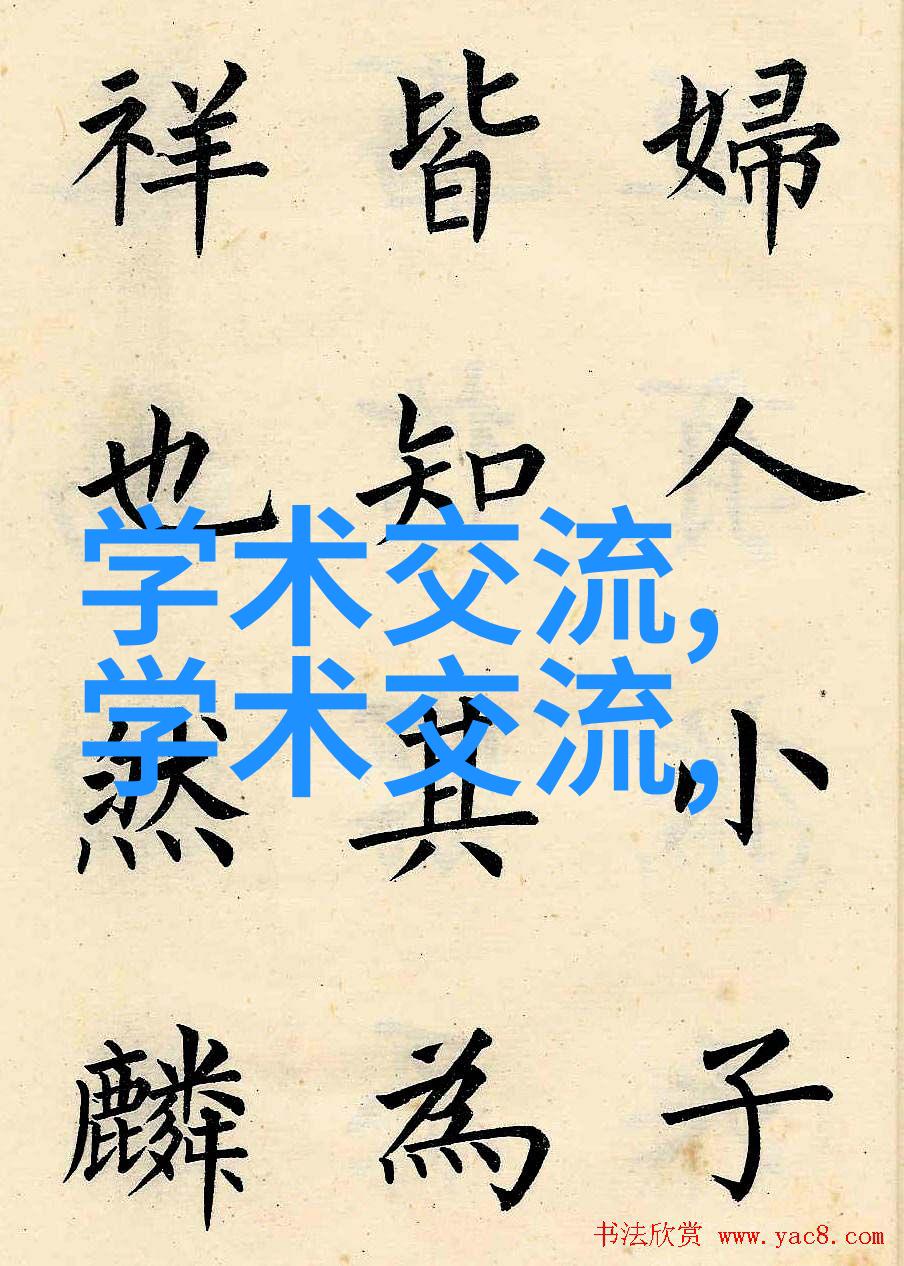 婦人小子
皆知其為
祥也然麟
学术交流,
学术交流,
书法欣赏 www.yac8.com